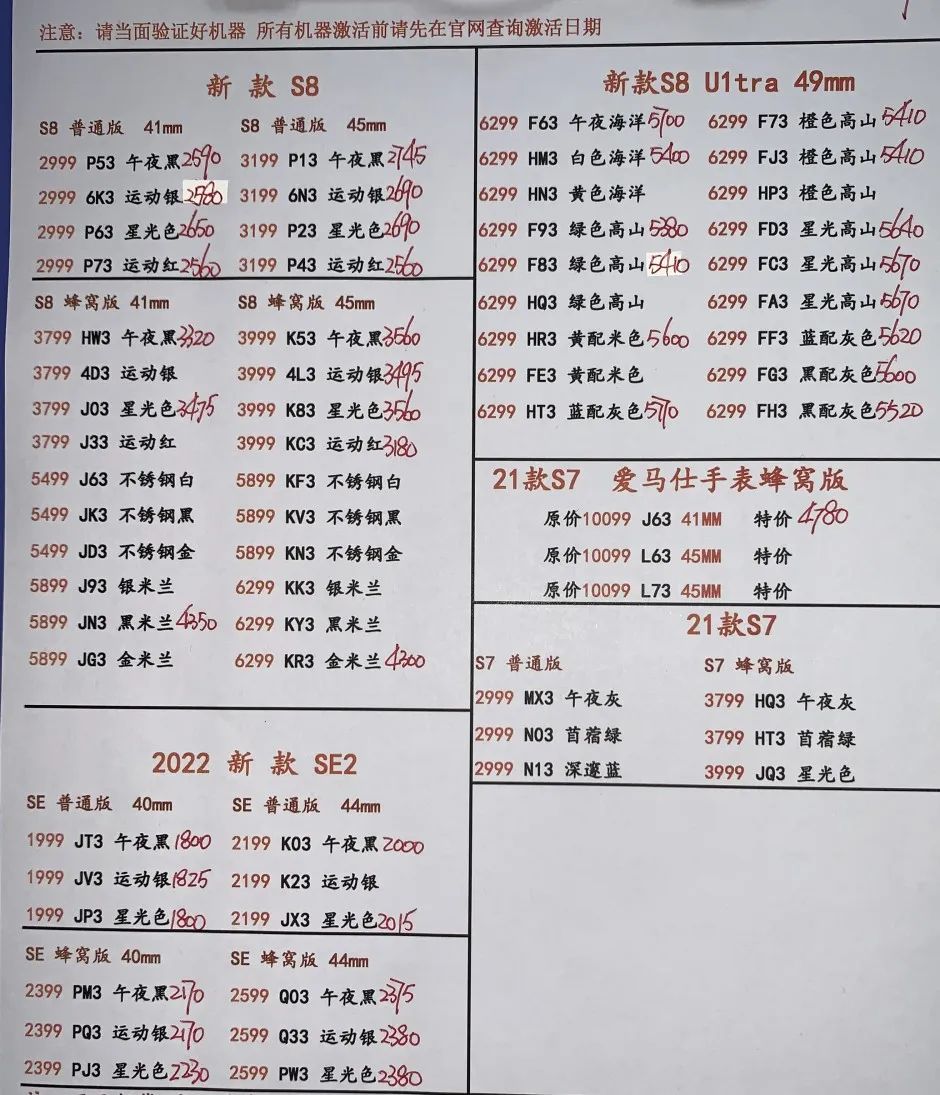 注意：请当面验证好机器 所有机器激活前请先在官网查询激活日期
新 款 S8
S8 普通版 41mm
2999 P53 午夜黑 2690
2999 6K3 运动银 2580
2999 P63 星光色 2650
2999 P73 运动红 2560
S8 普通版 45mm
3199 P13 午夜黑 2745
3199 6N3 运动银 2690
3199 P23 星光色 2690
3199 P43 运动红 2560
S8 蜂窝版 41mm
3799 HW3 午夜黑 3320
3799 4D3 运动银
3799 J03 星光色 3475
3799 J33 运动红
5499 J63 不锈钢白
5499 JK3 不锈钢黑
5499 JD3 不锈钢金
5899 J93 银米兰
5899 JN3 黑米兰 4350
5899 JG3 金米兰
S8 蜂窝版 45mm
3999 K53 午夜黑 3560
3999 4L3 运动银 3495
3999 K83 星光色 3560
3999 KC3 运动红 3180
5899 KF3 不锈钢白
5899 KV3 不锈钢黑
5899 KN3 不锈钢金
6299 KK3 银米兰
6299 KY3 黑米兰
6299 KR3 金米兰 4300
2022 新 款 SE2
SE 普通版 40mm
1999 JT3 午夜黑 1800
1999 JV3 运动银 1825
1999 JP3 星光色 1800
SE 普通版 44mm
2199 K03 午夜黑 2000
2199 K23 运动银
2199 JX3 星光色 2015
SE 蜂窝版 40mm
2399 PM3 午夜黑 2170
2399 PQ3 运动银 2170
2399 PJ3 星光色 2230
SE 蜂窝版 44mm
2599 Q03 午夜黑 2375
2599 Q33 运动银 2380
2599 PW3 星光色 2380
新款S8 U1tra 49mm
6299 F63 午夜海洋 5700
6299 HM3 白色海洋 5400
6299 HN3 黄色海洋
6299 F93 绿色高山 5380
6299 F83 绿色高山 5410
6299 HQ3 绿色高山
6299 HR3 黄配米色 5600
6299 FE3 黄配米色
6299 HT3 蓝配灰色 5770
6299 F73 橙色高山 5410
6299 FJ3 橙色高山 5410
6299 HP3 橙色高山
6299 FD3 星光高山 5640
6299 FC3 星光高山 5670
6299 FA3 星光高山 5670
6299 FF3 蓝配灰色 5620
6299 FG3 黑配灰色 5600
6299 FH3 黑配灰色 5520
21款S7 爱马仕手表蜂窝版
原价10099 J63 41MM 特价 4780
原价10099 L63 45MM 特价
原价10099 L73 45MM 特价
21款S7
S7 普通版
2999 MX3 午夜灰
2999 N03 苜蓿绿
2999 N13 深邃蓝
S7 蜂窝版
3799 HQ3 午夜灰
3799 HT3 苜蓿绿
3999 JQ3 星光色